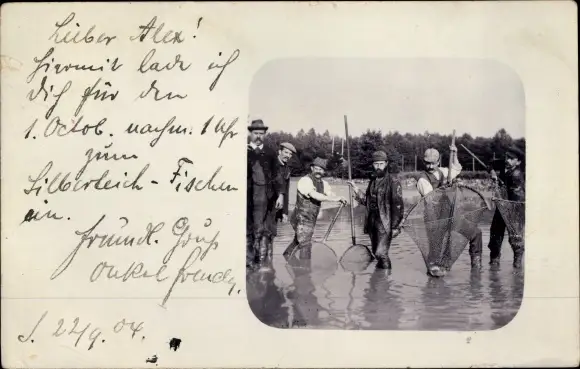 Lieber Alex!
Hiermit lade ich
Dich für den
1. Octob. nachm. 1 Uhr
zum
Silberteich-Fischen
ein.
Freundl. Gruß
Onkel
22/9. 04.